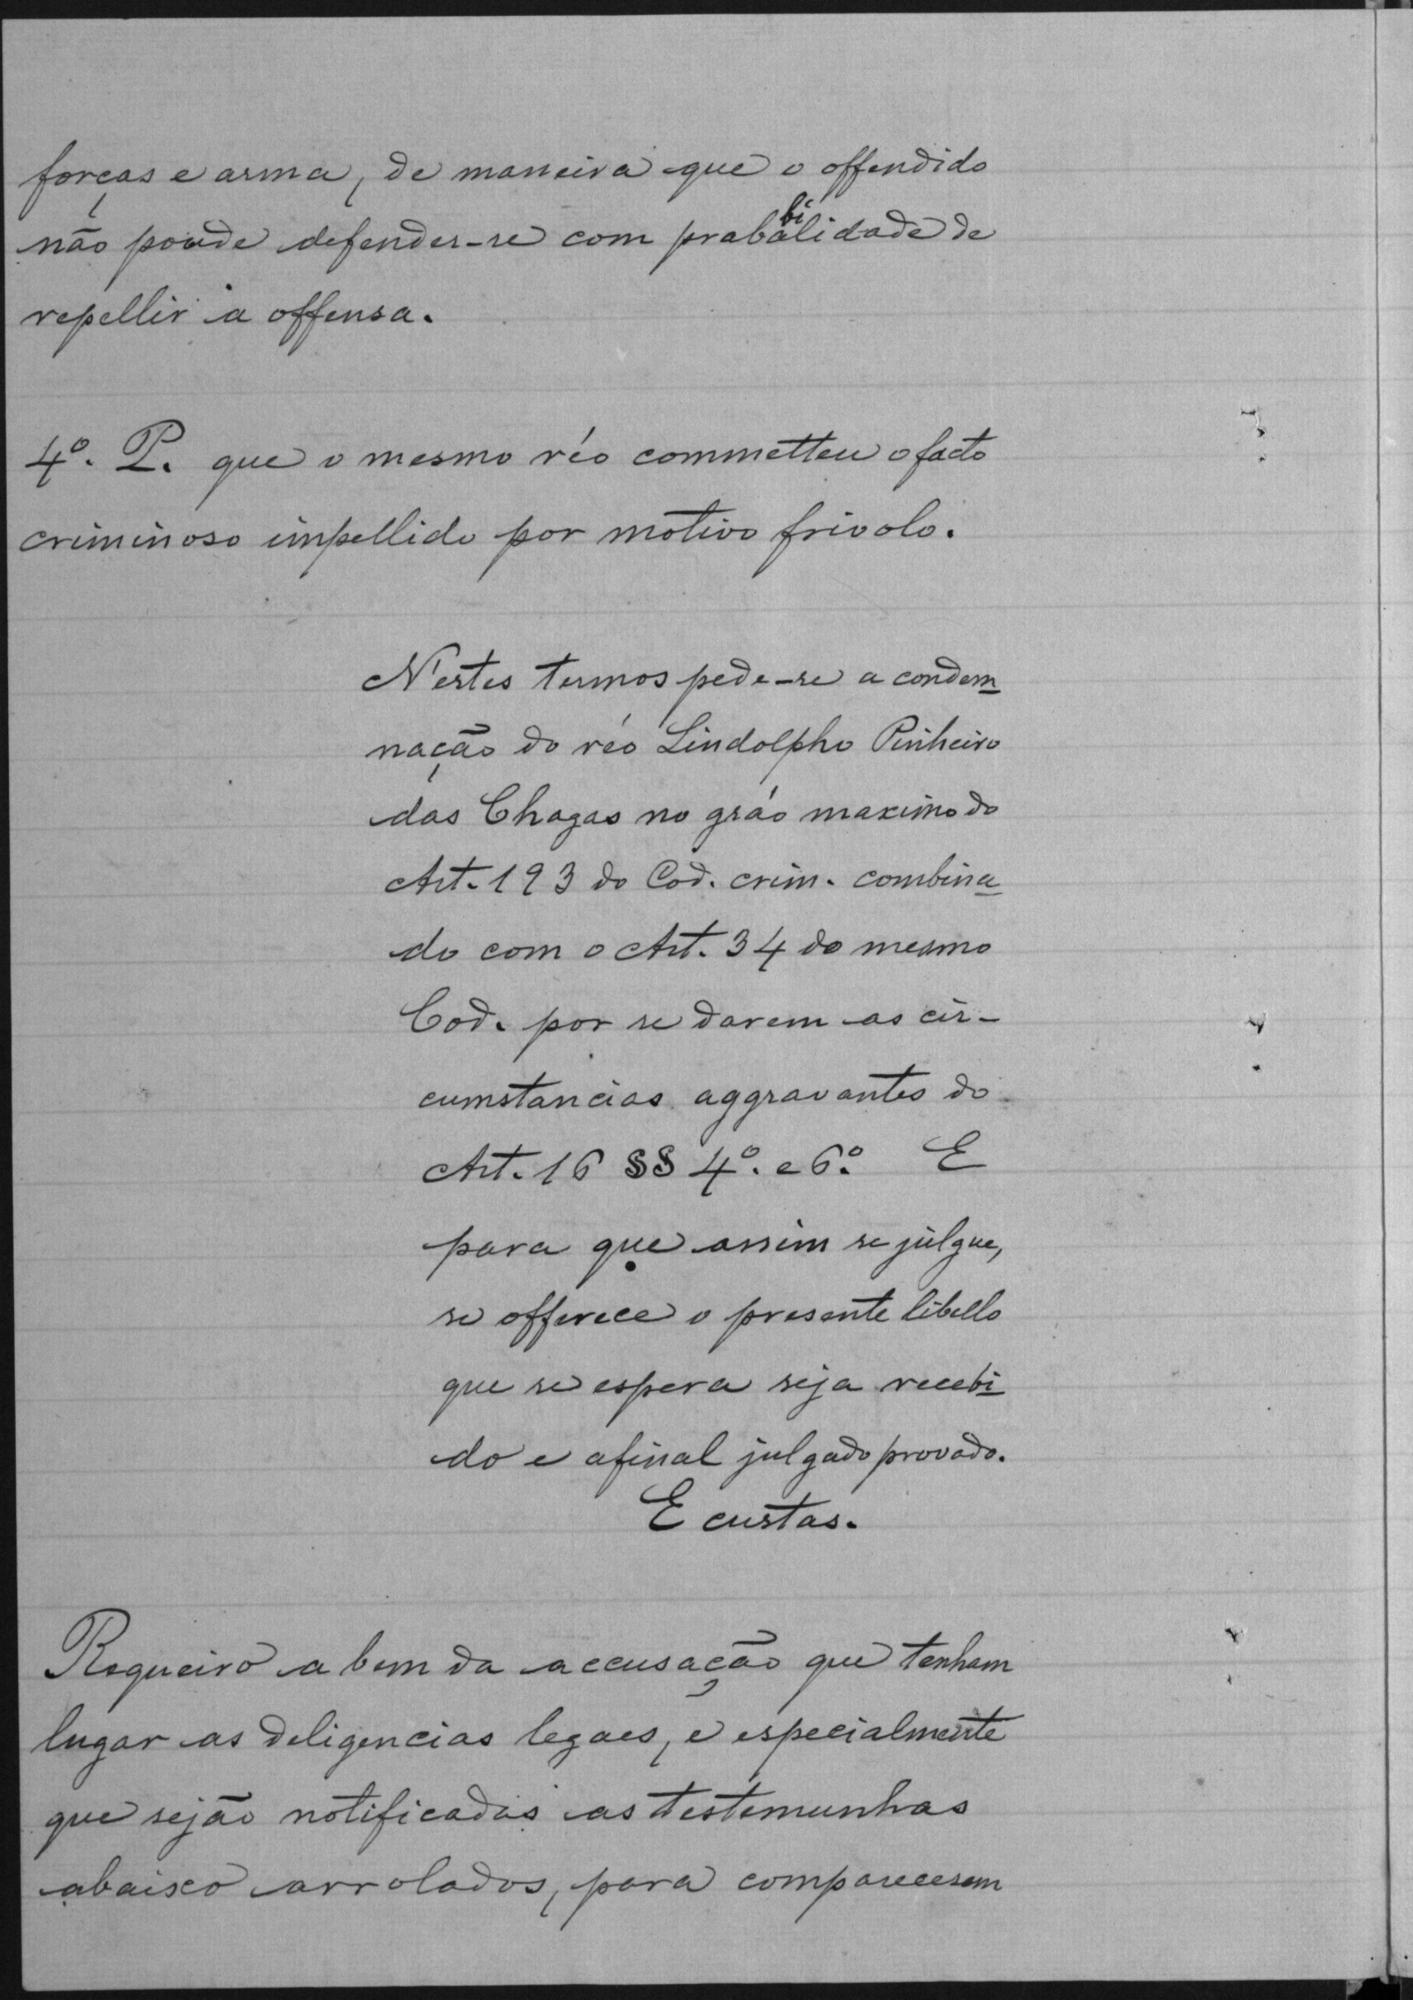 forças e arma, de maneira que o offendido
não poude defender-se com prababilidade de
repellir a offensa.
4º. P. que o mesmo réo commetteu o facto
criminoso impellido por motivo frivolo.
N'estes termos pede-se a condem
nação do réo Lindolpho Pinheiro
das Chagas no gráo maximo do
Art. 193 do Cod. crim. combina
do com o Art. 34 do mesmo
Cod. por se darem as cir-
cumstancias aggravantes do
Art. 16 §§ 4º. e 6º. E
para que assim se julgue,
se offerece o presente libello
que se espera seja recebi
do e afinal julgado provado.
E custas.
Requeiro a bem da accusação que tenham
lugar as deligencias legaes, e especialmente
que sejão notificadas as testemunhas
abaixo arrolados, para comparecerem